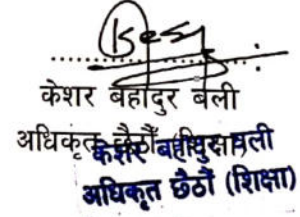 केशर बहादुर बली
अधिकृत छैठौं (शिक्षा)
केशर बहादुर बली
अधिकृत छैठौं (शिक्षा)